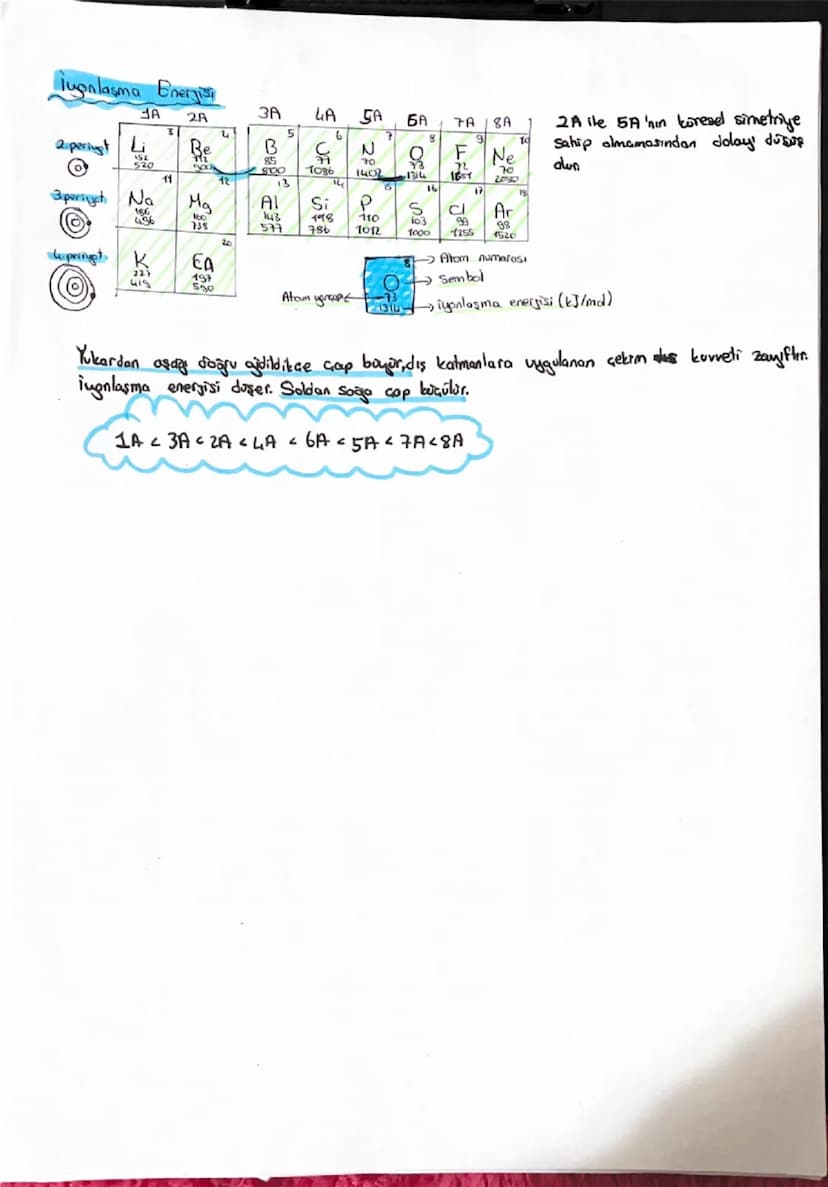 İyonlaşma Enerjisi
1A 2A 3A 4A 5A 6A 7A 8A
2.periyot
3 4 5 6 7 8 9 10
Li Be B C N O F Ne
152 112 85 77 70 73 72 70
520 800 1086 1402 1314 2080
3.periyot
11 12 13 14 15 16 17 18
Na Mg Al Si P S Cl Ar
186 160 143 118 110 103 99 98
496 738 577 786 1012 1000 1255 1520
4.periyot
20
K CA
227 197
419 590
2A ile 5A'nın küresel simetriye
sahip olmamasından dolayı düşüş
olur
8 Atom numarası
O Sembol
Atom yarıçapı 73
1314 iyonlaşma enerjisi (kJ/mol)
Yukardan aşağı doğru gidildikçe çap büyür, dış katmanlara uygulanan çekim kuvveti zayıflar.
İyonlaşma enerjisi düşer. Soldan sağa çap küçülür.
1A < 3A < 2A < 4A < 6A < 5A < 7A < 8A